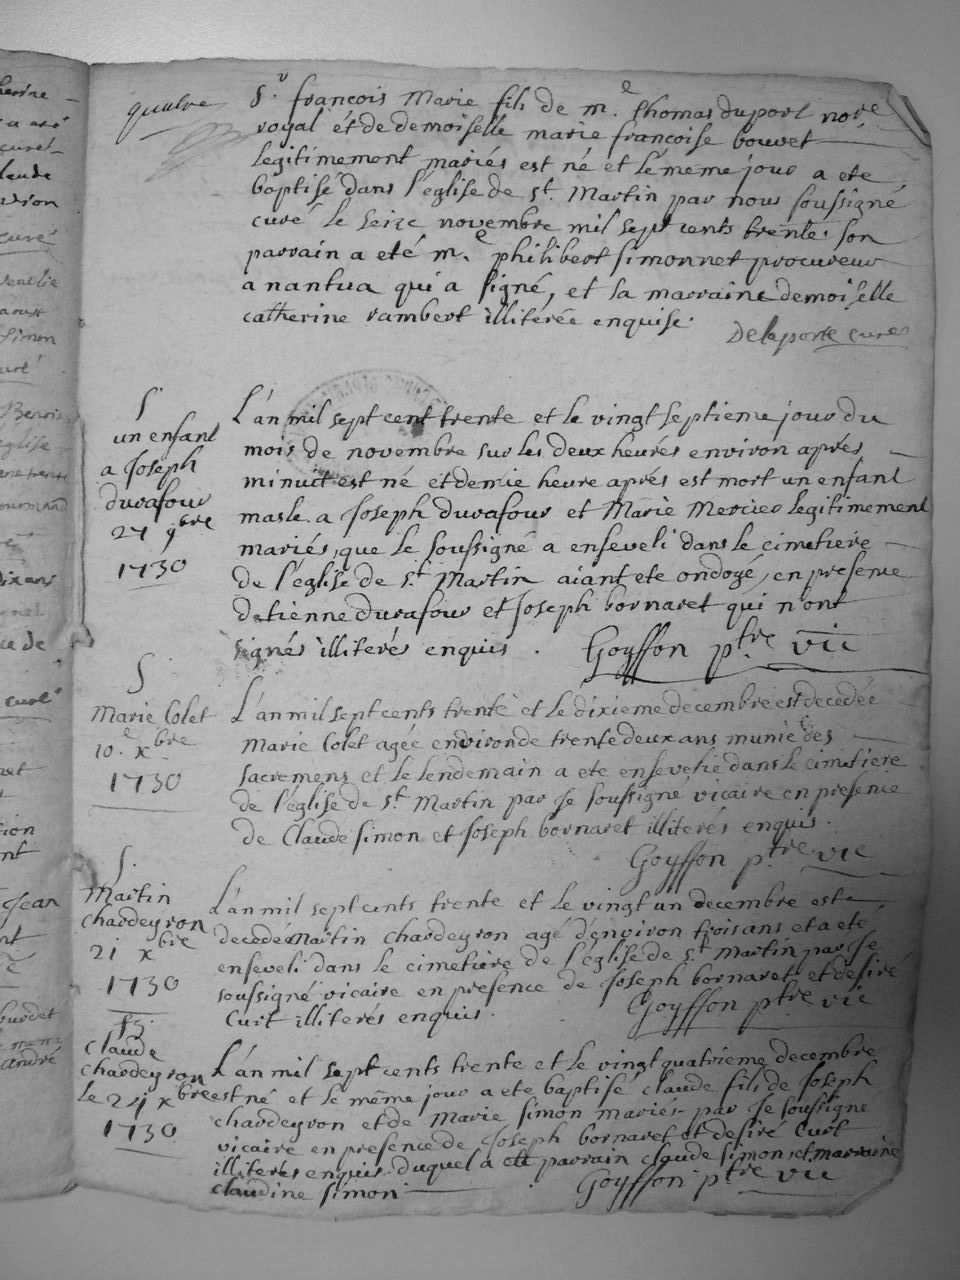 quatre
Sr. françois Marie fils de me. Thomas duport nore
royal ét de demoiselle marie françoise bouvet
legitimement mariés est né et le même jour a ete
baptisé dans l'église de St. Martin par nous soussigné
curé le seize novembre mil sept cents trente. son
parrain a eté me. philibert simonnet procureur
a nantua qui a signé, et sa marraine demoiselle
catherine rambert illiterée enquise.
Delaporte curé
S
un enfant
a Joseph
durafour
27 9bre
1730
L'an mil sept cent trente et le vingt septieme jour du
mois de novembre sur les deux heurés environ aprés
minuit est né et demie heure aprés est mort un enfant
masle a Joseph durafour et Marie Mercier legitimement
mariés, que le soussigné a enseveli dans le cimetiere
de l'église de St Martin aiant ete ondoyé, en presence
detienne durafour et Joseph bornaret qui n'ont
signés illiterés enquis.
Goyffon ptre vic
S
Marie Colet
10e. xbre
1730
L'an mil sept cents trente et le dixieme decembre est decedée
Marie Colet agée environ de trente deux ans munie des
sacremens et le lendemain a ete ensevelie dans le cimetiere
de l'église de St. Martin par Je soussigné vicaire en presence
de Claude simon et Joseph bornaret illiterés enquis.
Goyffon ptre vic
S.
Martin
chardeyron
21 xbre
1730
L'an mil sept cents trente et le vingt un decembre est
decedé Martin chardeyron agé d'environ trois ans et a eté
enseveli dans le cimetiere de l'église de St Martin par Je
soussigné vicaire en presence de Joseph bornaret et desiré
Curt illiterés enquis.
Goyffon ptre vic
claude
chardeyron
le 24 xbre
1730
L'an mil sept cents trente et le vingt quatrieme decembre
est né et le même jour a ete baptisé claude fils de Joseph
chardeyron et de Marie simon mariés par Je soussigné
vicaire en presence de Joseph bornaret et desiré Curt
illiterés enquis duquel a eté parrain claude simon et marraine
claudine simon
Goyffon ptre vic